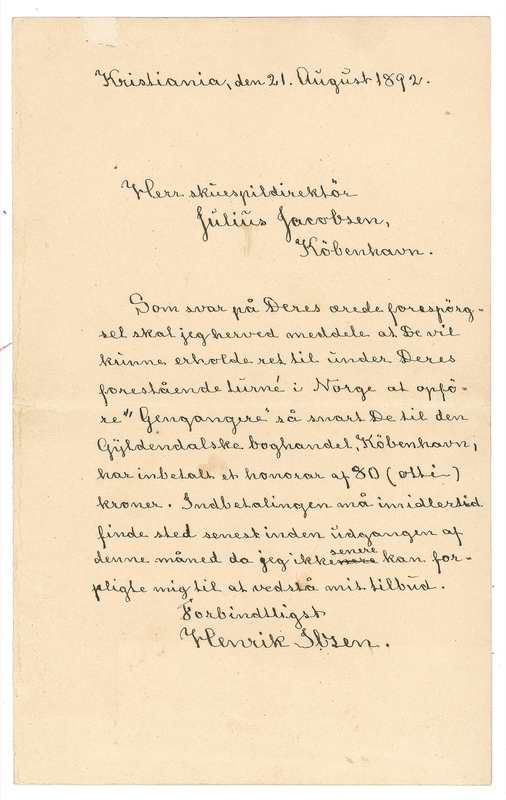 Kristiania, den 21. August 1892.
Herr skuespildirektör
Julius Jacobsen,
Köbenhavn.
Som svar på Deres ærede forespörg-
sel skal jeg herved meddele at De vil
kunne erholde ret til under Deres
forestående turné i Norge at opfö-
re "Gengangere" så snart De til den
Gyldendalske boghandel, Köbenhavn,
har inbetalt et honorar af 80 (otti)
kroner. Indbetalingen må imidlertid
finde sted senest inden udgangen af
denne måned da jeg ikke senere kan for-
pligte mig til at vedstå mit tilbud.
Forbindtligst
Henrik Ibsen.